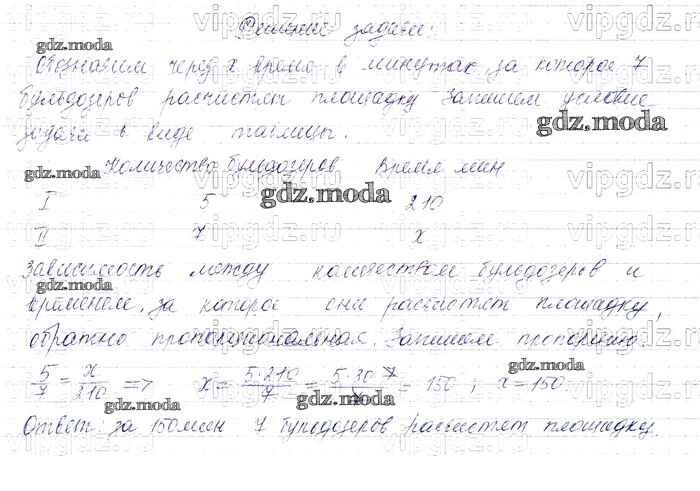 Решение задачи:
Обозначим через x время в минутах за которое 7
бульдозеров расчистят площадку Запишем условие
задачи в виде таблицы.
Количество бульдозеров Время мин
I 5 210
II 7 x
Зависимость между количеством бульдозеров и
временем, за которое они расчистят площадку,
обратно пропорциональная. Запишем пропорцию.
5/7 = x/210 => x = 5·210/7 = 5·30·7/7 = 150 ; x = 150.
Ответ: за 150 мин 7 бульдозеров расчистят площадку.
gdz.moda
vipgdz.ru